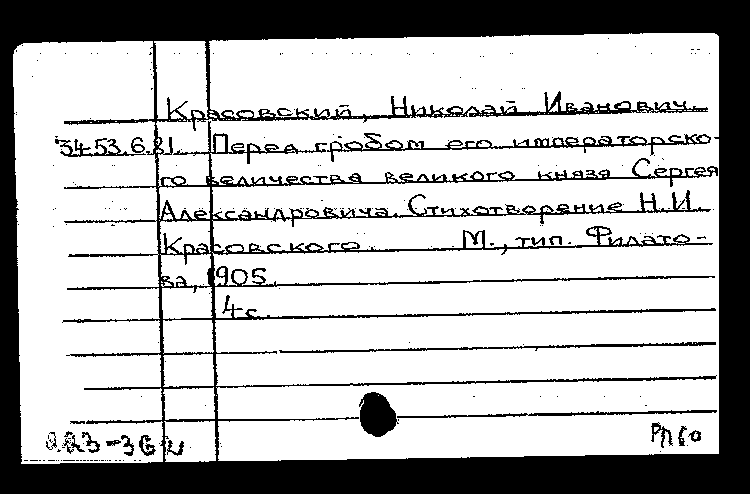 Красовский, Николай Иванович.
34.53.6.81. Перед гробом его императорско-
го величества великого князя Сергея
Александровича. Стихотворение Н.И.
Красовского. М., тип. Филато-
ва, 1905.
4 с.
223-362 РП 60